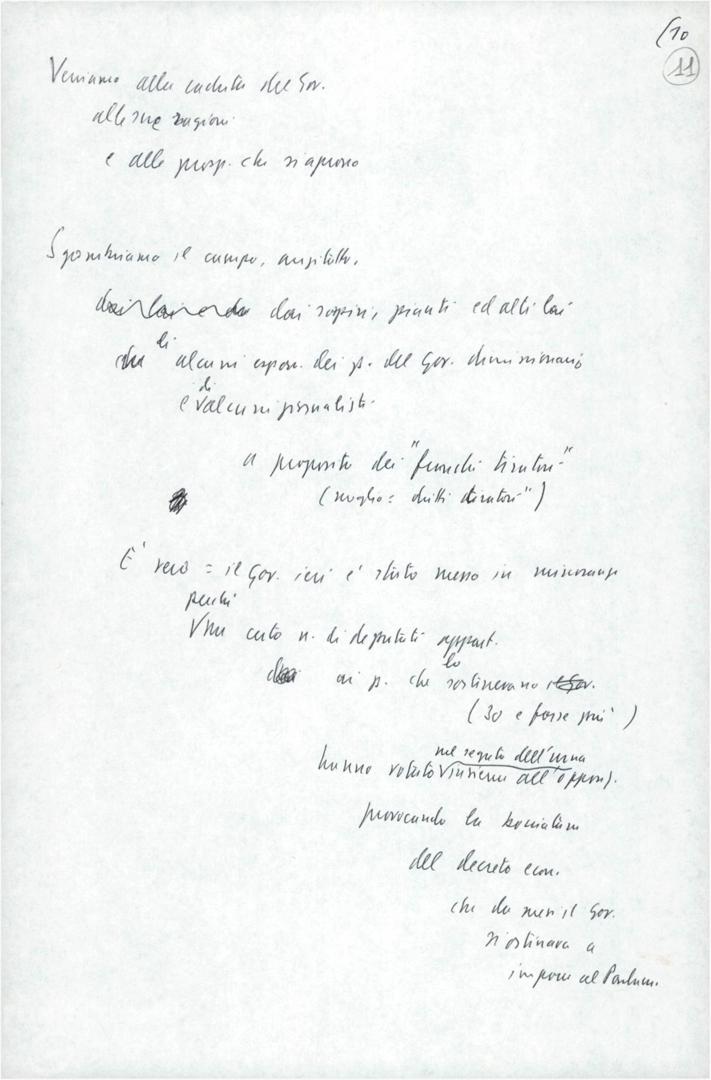 (10
11
Veniamo alla caduta del Gov.
alle sue ragioni
e alle prosp. che si aprono
Sgombriamo il campo, anzitutto,
dai sospiri, pianti ed alti lai
di
alcuni espon. dei p. del Gov. dimissionario
di
e alcuni giornalisti
a proposito dei "franchi tiratori"
(meglio = dritti tiratori")
E' vero = il Gov. ieri e' stato messo in minoranza
perché
un certo n. di deputati appart.
lo
ai p. che sostenevano il Gov.
(30 e forse più)
nel segreto dell'urna
hanno votato insieme all'opposiz.
provocando la bocciatura
del decreto econ.
che da mesi il Gov.
si ostinava a
imporre al Parlam.